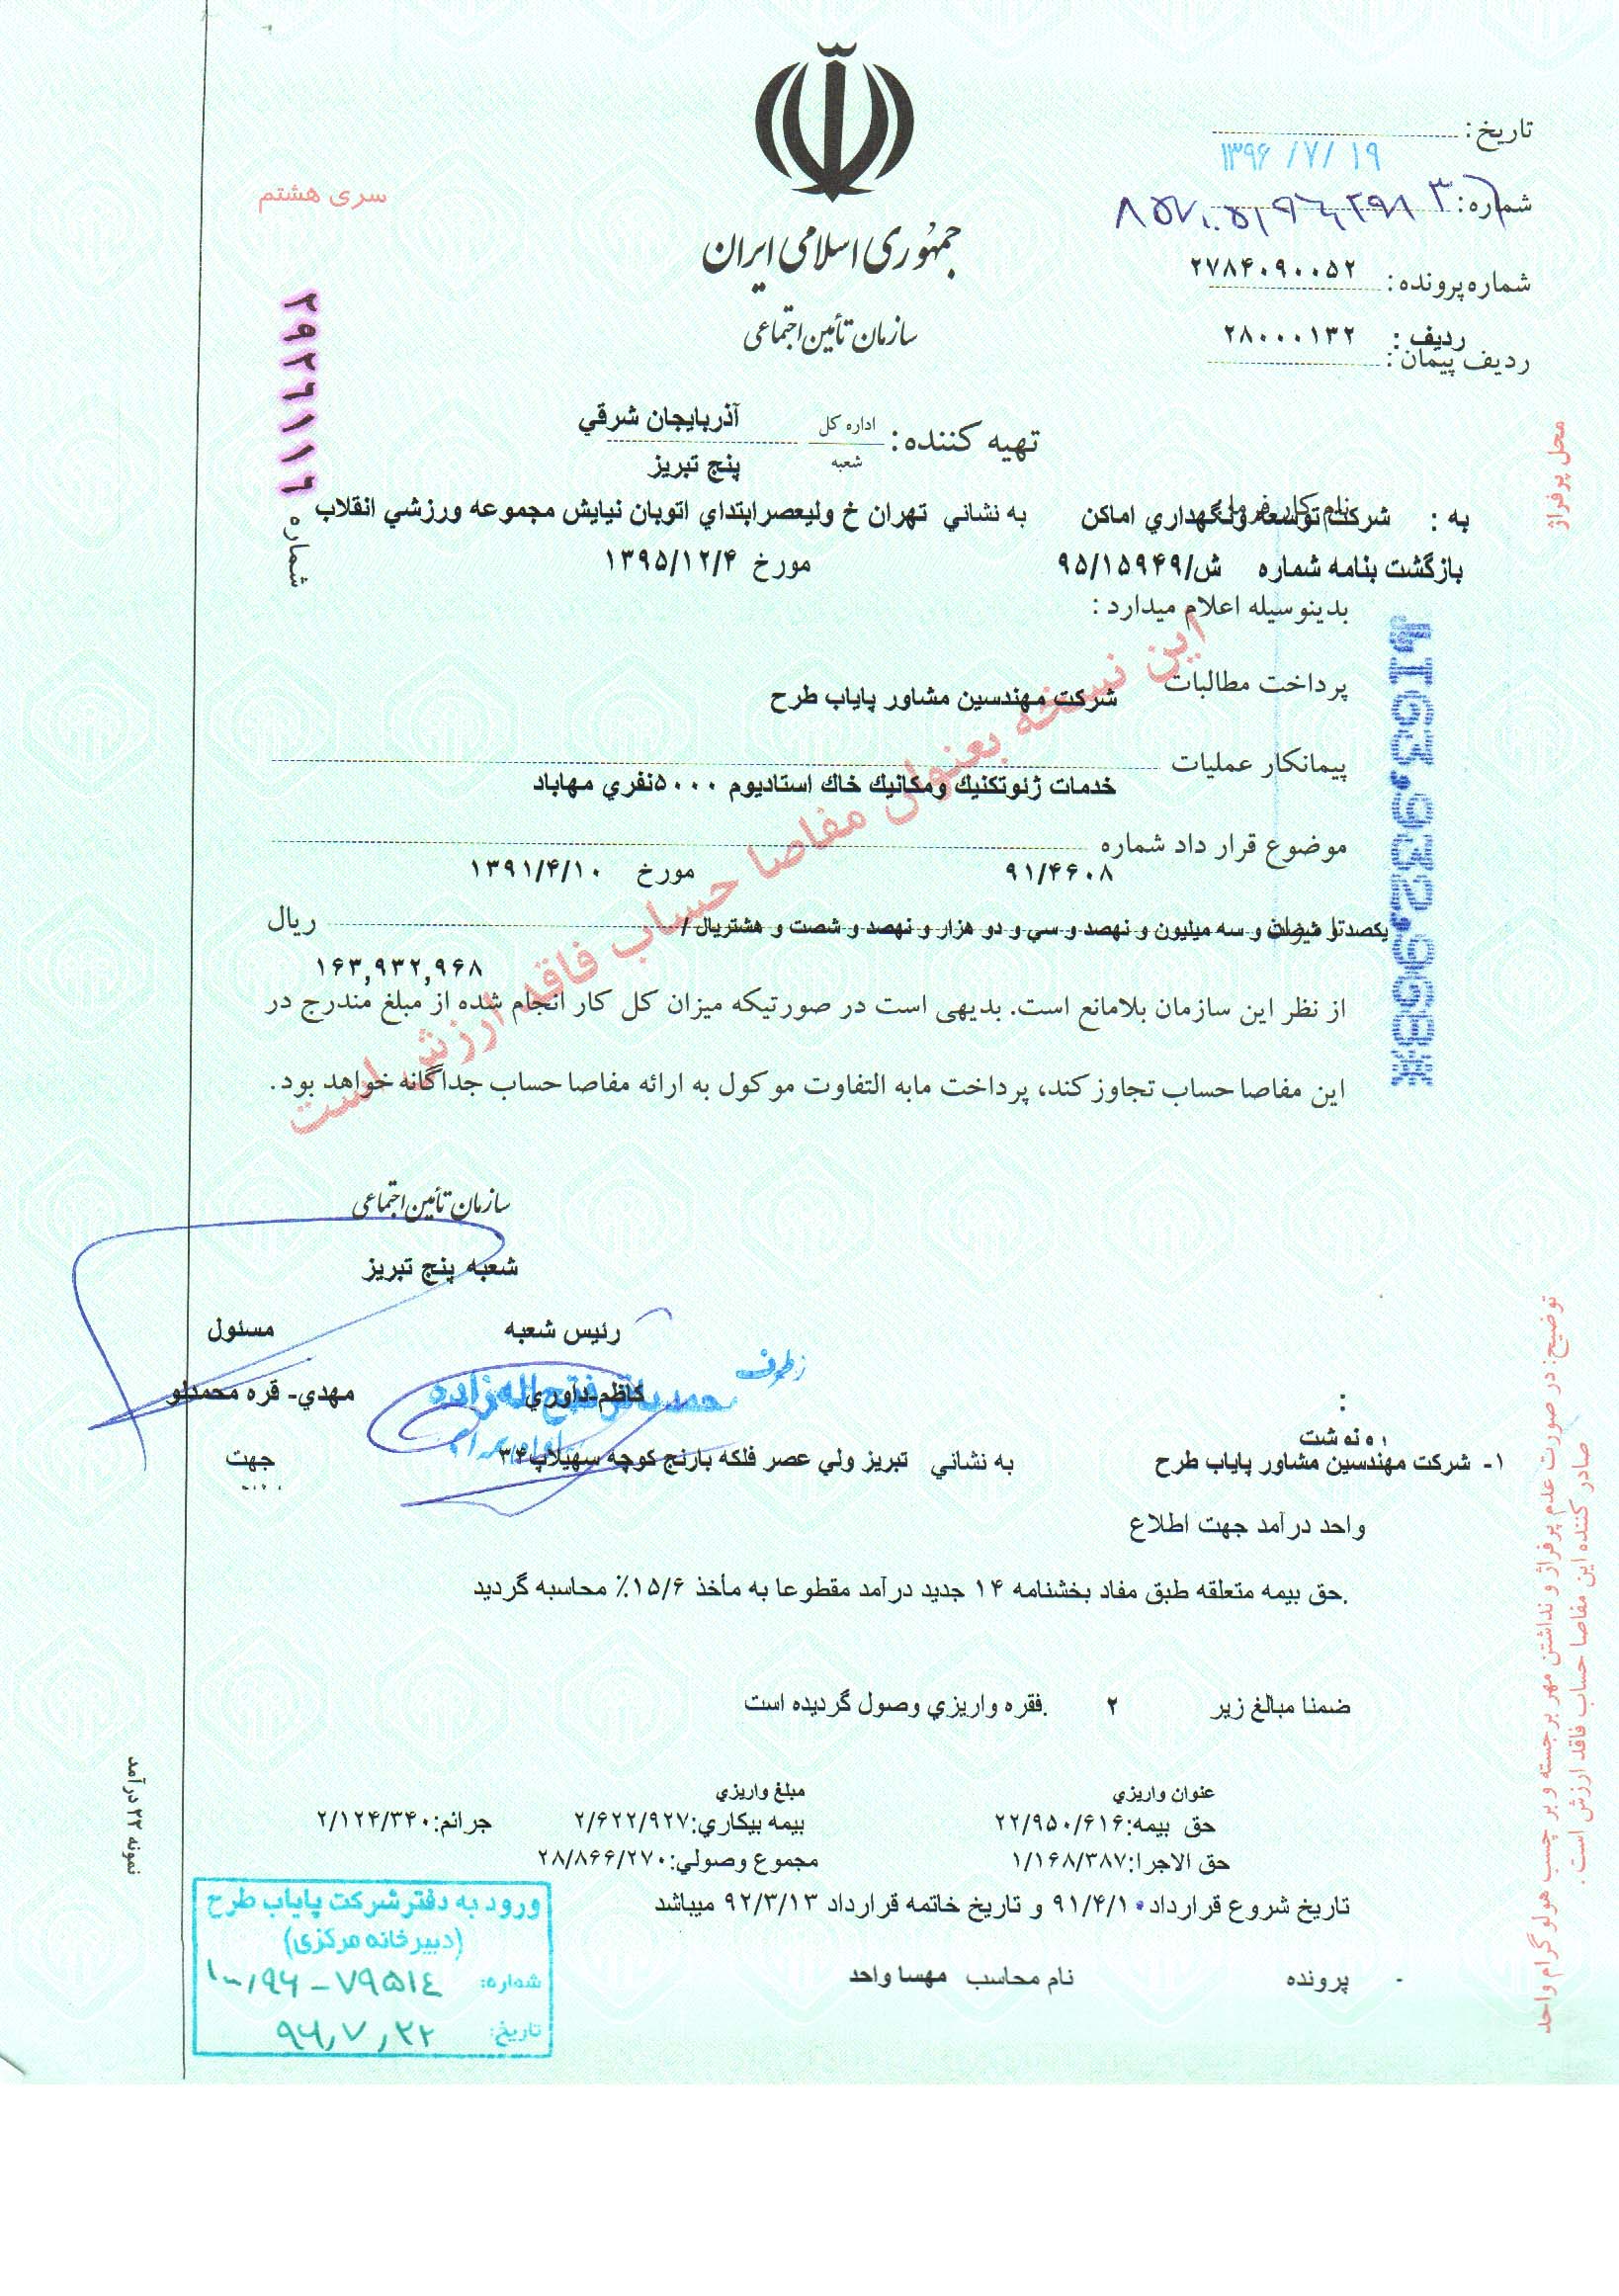 تاریخ:
۱۳۹۶ /۷/ ۱۹
شماره:
شماره پرونده: ۲۷۸۴۰۹۰۰۵۲
ردیف : ۲۸۰۰۰۱۳۲
ردیف پیمان:
سری هشتم
جمهوری اسلامی ایران
سازمان تأمین اجتماعی
شماره ۲۹۲۶۱۱۶
تهیه کننده: اداره کل آذربایجان شرقي
شعبه پنج تبریز
نام کارفرما:
به : شرکت توسعه ونگهداري اماکن به نشاني تهران خ ولیعصرابتداي اتوبان نیایش مجموعه ورزشي انقلاب
بازگشت بنامه شماره ش/۹۵/۱۵۹۴۹ مورخ ۱۳۹۵/۱۲/۴
بدینوسیله اعلام میدارد :
پرداخت مطالبات شرکت مهندسین مشاور پایاب طرح
پیمانکار عملیات
خدمات ژئوتکنیك ومکانیك خاك استادیوم ۵۰۰۰نفري مهاباد
موضوع قرار داد شماره
۹۱/۴۶۰۸ مورخ ۱۳۹۱/۴/۱۰
تا میزان یکصد و شصت و سه میلیون و نهصد و سي و دو هزار و نهصد و شصت و هشتریال / ریال
۱۶۳,۹۳۲,۹۶۸
از نظر این سازمان بلامانع است. بدیهی است در صورتیکه میزان کل کار انجام شده از مبلغ مندرج در
این مفاصا حساب تجاوز کند، پرداخت مابه التفاوت موکول به ارائه مفاصا حساب جداگانه خواهد بود.
این نسخه بعنوان مفاصا حساب فاقد ارزش است
163,932,968*
محل پرفراژ
سازمان تأمین اجتماعی
شعبه پنج تبریز
رئیس شعبه مسئول
از طرف
کاظم-داوري مهدي- قره محمدلو
محمدباقر فتح اله زاده
رونوشت :
۱- شرکت مهندسین مشاور پایاب طرح به نشاني تبریز ولي عصر فلکه بارنج کوچه سهیلاپ۳۴ جهت
واحد درآمد جهت اطلاع
.حق بیمه متعلقه طبق مفاد بخشنامه ۱۴ جدید درآمد مقطوعا به مأخذ ۱۵/۶٪ محاسبه گردید
ضمنا مبالغ زیر ۲ .فقره واریزي وصول گردیده است
عنوان واریزي مبلغ واریزي
حق بیمه:۲۲/۹۵۰/۶۱۶ بیمه بیکاري:۲/۶۲۲/۹۲۷ جرائم:۲/۱۲۴/۳۴۰
حق الاجرا:۱/۱۶۸/۳۸۷ مجموع وصولي:۲۸/۸۶۶/۲۷۰
تاریخ شروع قرارداد۹۱/۴/۱۰ و تاریخ خاتمه قرارداد ۹۲/۳/۱۳ میباشد
- پرونده نام محاسب مهسا واحد
ورود به دفتر شرکت پایاب طرح
(دبیرخانه مرکزی)
شماره: ۷۹۵۱۴ – ۱۰۰/۹۶
تاریخ: ۹۶/۷/۲۲
نمونه ۲۳ درآمد
توضیح: در صورت عدم پرفراژ و نداشتن مهر برجسته و بر چسب هولوگرام واحد
صادر کننده این مفاصا حساب فاقد ارزش است.